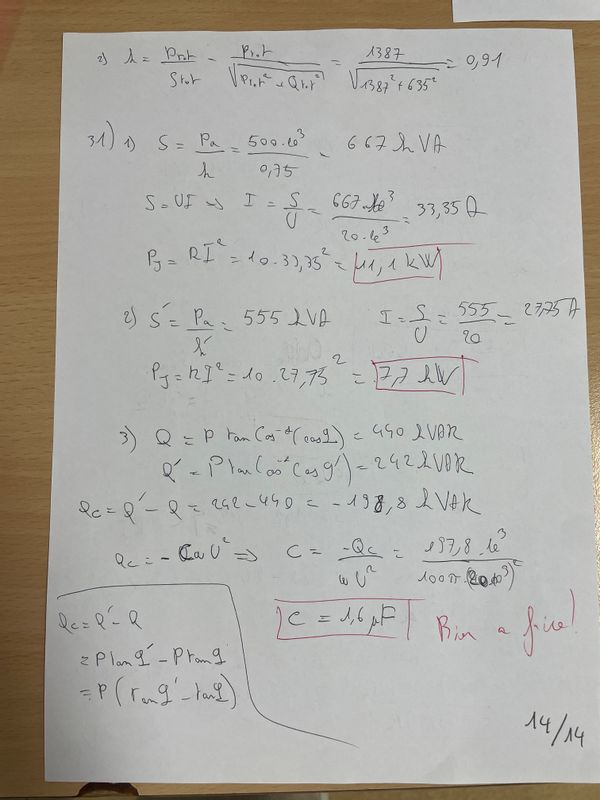 2) k = Ptot/Stot = Ptot/√(Ptot² + Qtot²) = 1387/√(1387² + 635²) = 0,91
31) 1) S = Pa/k = 500.10³/0,75 = 667 kVA
S = UI => I = S/U = 667.10³/20.10³ = 33,35 A
PJ = RI² = 10.33,35² = 11,1 kW
2) S' = Pa/k' = 555 kVA I = S/U = 555/20 = 27,75 A
PJ = RI² = 10.27,75² = 7,7 kW
3) Q = P tan(cos⁻¹(cosφ)) = 440 kVAR
Q' = P tan(cos⁻¹(cosφ') = 242 kVAR
Qc = Q' - Q = 242 - 440 = -198,8 kVAR
Qc = -CωU² => C = -Qc/ωU² = 197,8.10³/100π.(20.10³)²
C = 1,6 µF
Qc = Q' - Q
= P tanφ' - P tanφ
= P (tanφ' - tanφ)
14/14